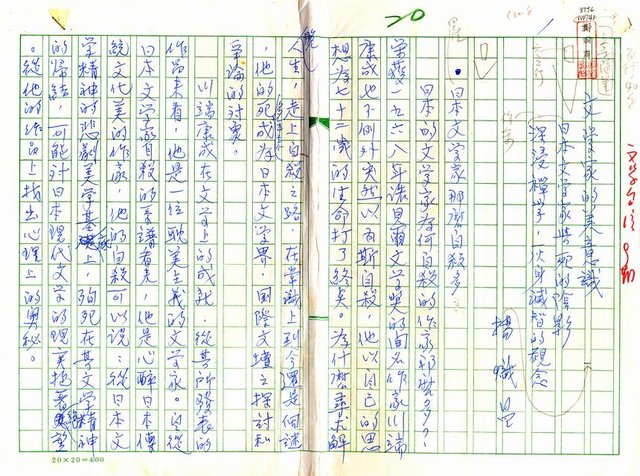 文學家的美意識
日本文學家世死的陰影
深浸禪學，灰身滅智的觀念
楊熾昌
日本文學家那麼自殺多
日本的文學家為何自殺的作家那麼多？
榮獲一九六八年諾貝爾文學獎的聞名作家川端
康成也不例外突然以瓦斯自殺，他以自己的思
想為七十二歲的生命打了終矣。為什麼尋求解
脫人生，走上自殺之路，在常識上到今還是個謎
，他的死成為日本文學界，國際文壇之探討和
爭論的對象。
以端康成在文學上的成就，從其所發表的
作品來看，他是一位耽美主義的文學家。自從
日本文學家自殺的系譜看去，他是心醉日本傳
統文化美的作家，他的自殺可以說：從日本文
學精神的悲劇美學基底上，殉死在其文學精神
的歸結，可能對日本現代文學的現實抱著絕望
。從他的作品上找出心理上的奧秘。
20×20=400